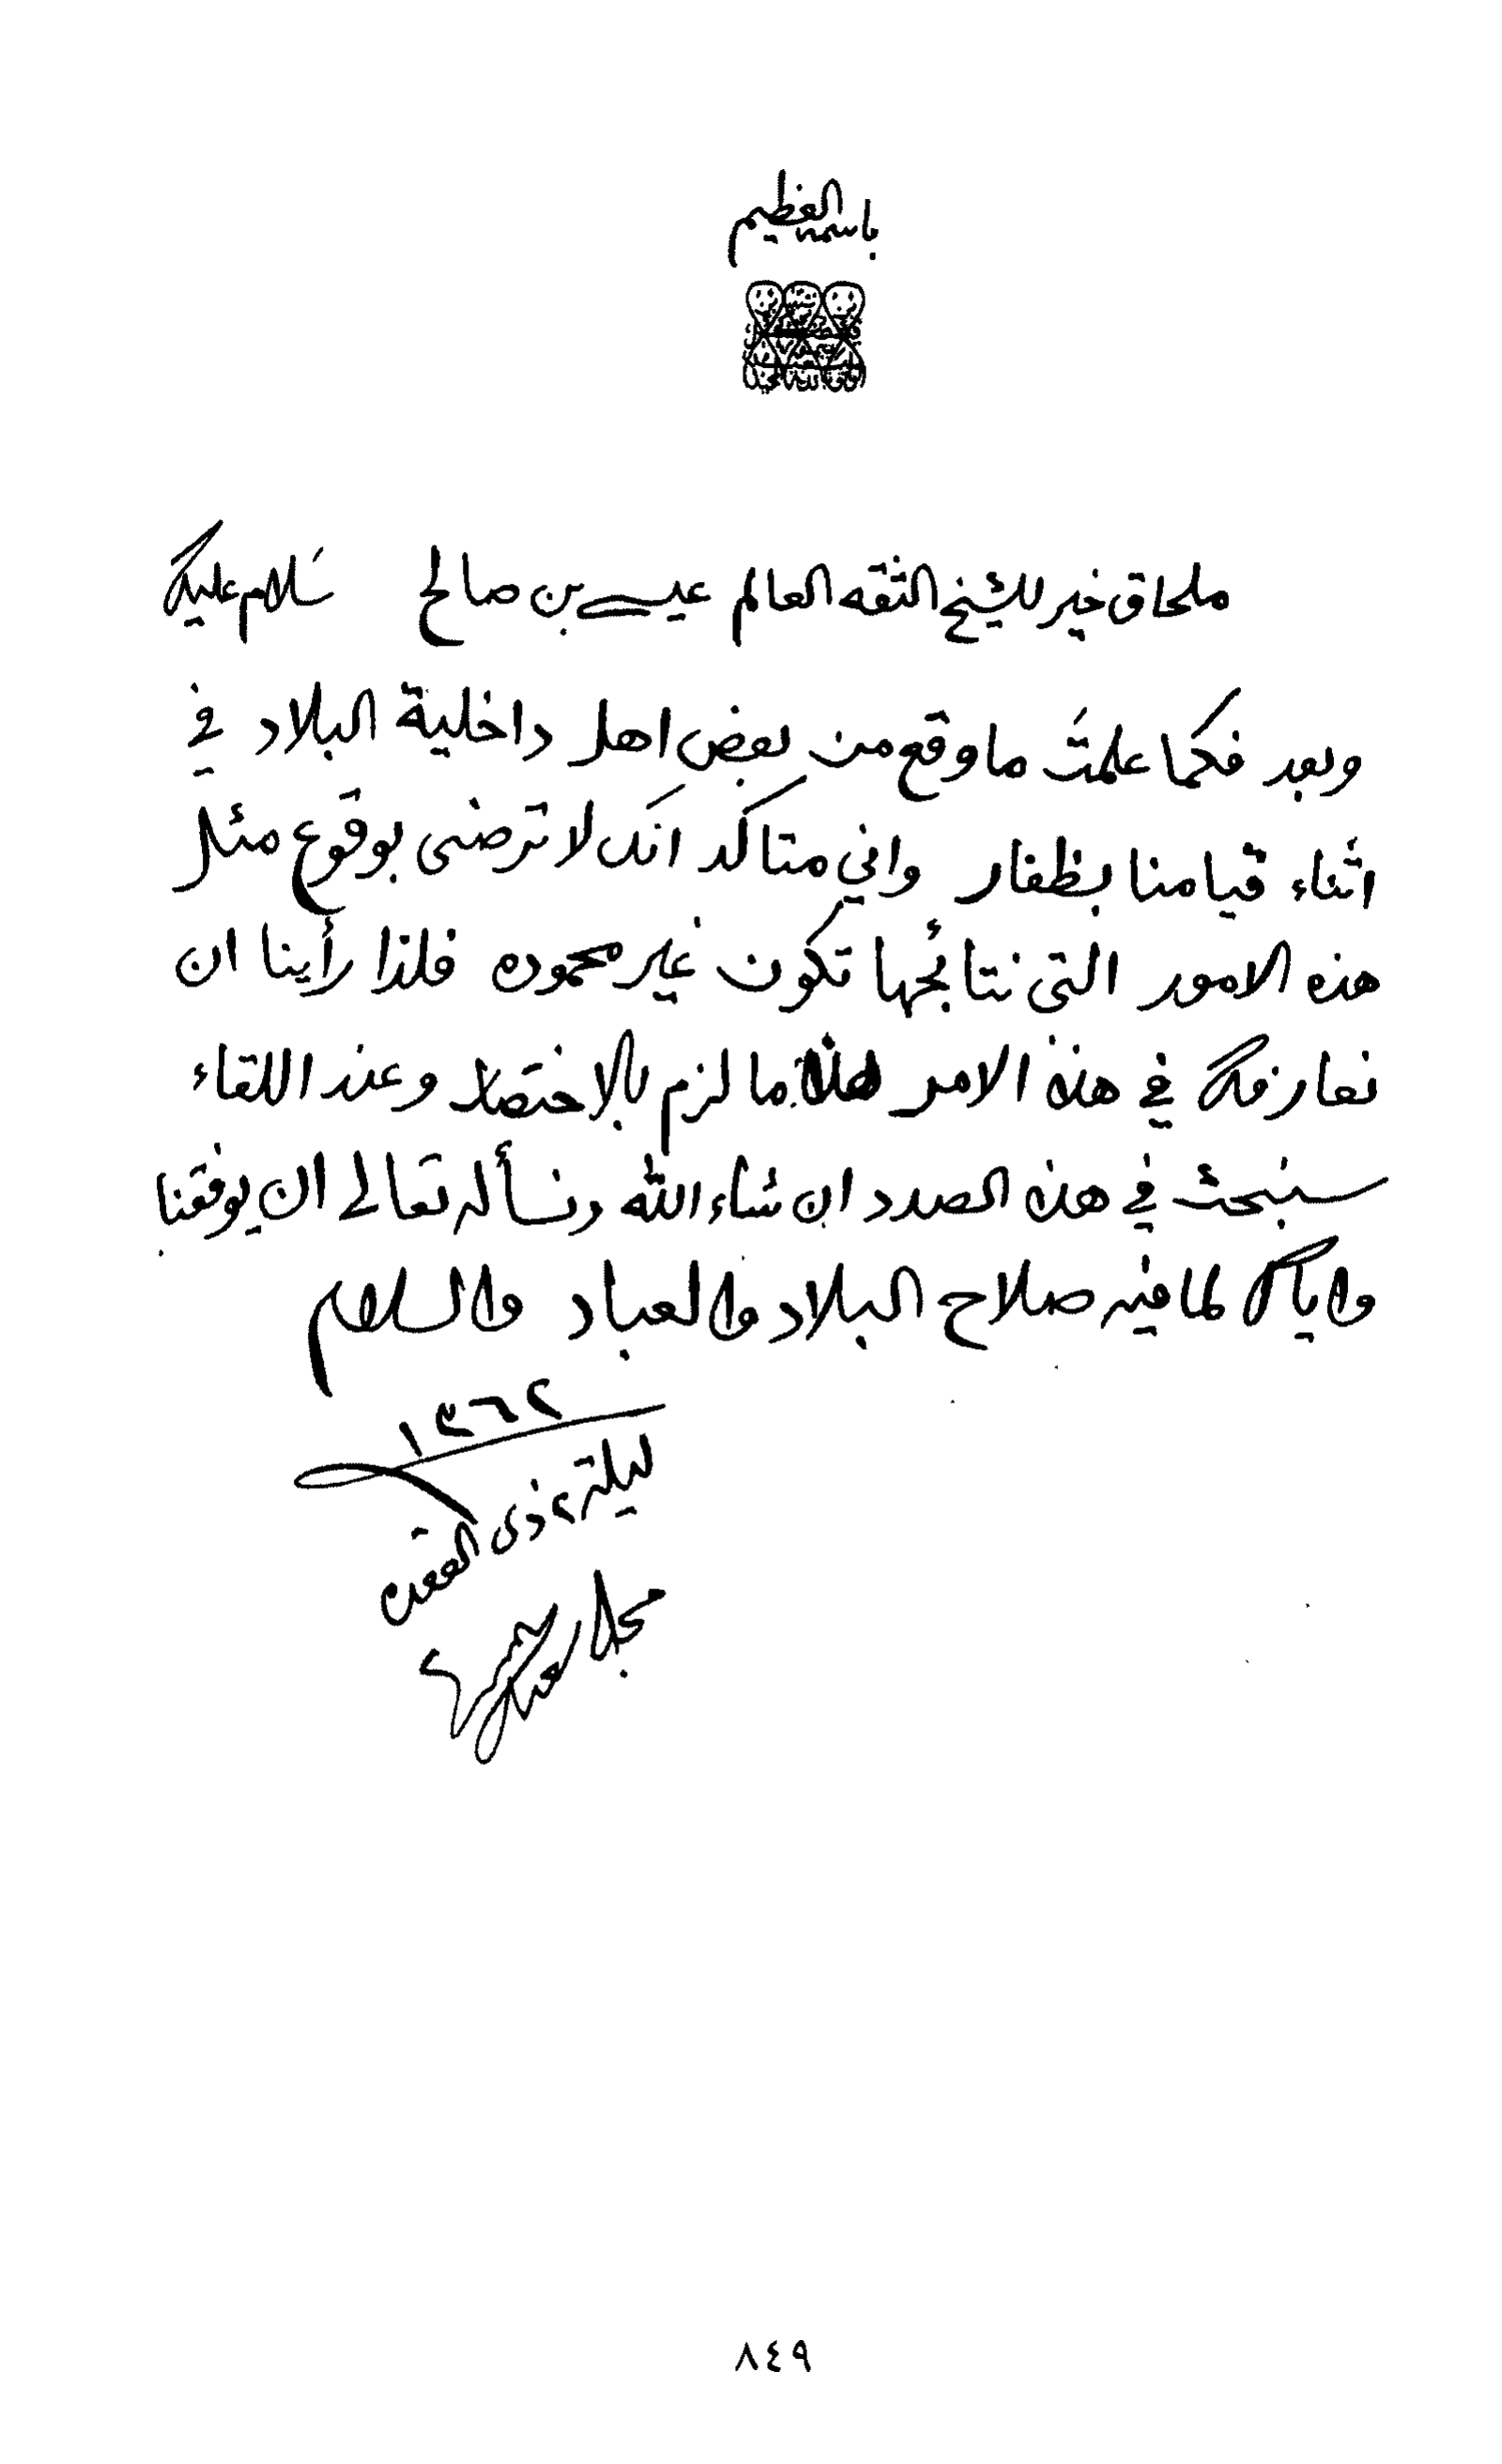 باسمه العظيم
ملحاق خير للشيخ الثقه العالم عيسى بن صالح سلام عليك
وبعد فكما علمتَ ما وقع من بعض اهل داخلية البلاد في
اثناء قيامنا بظفار واني متاكد انك لا ترضى بوقوع مثل
هذه الامور التى نتائجها تكون غير محموده فلذا رأينا ان
نعارفك في هذه الامر هذا ما لزم بالاختصار وعند اللقاء
سنبحث في هذه الصدد ان شاء الله ونسأله تعالى ان يوفقنا
واياك لما فيه صلاح البلاد والعباد والسلام
١٣٦٢
ليلة ٢ ذى القعده
٨٤٩